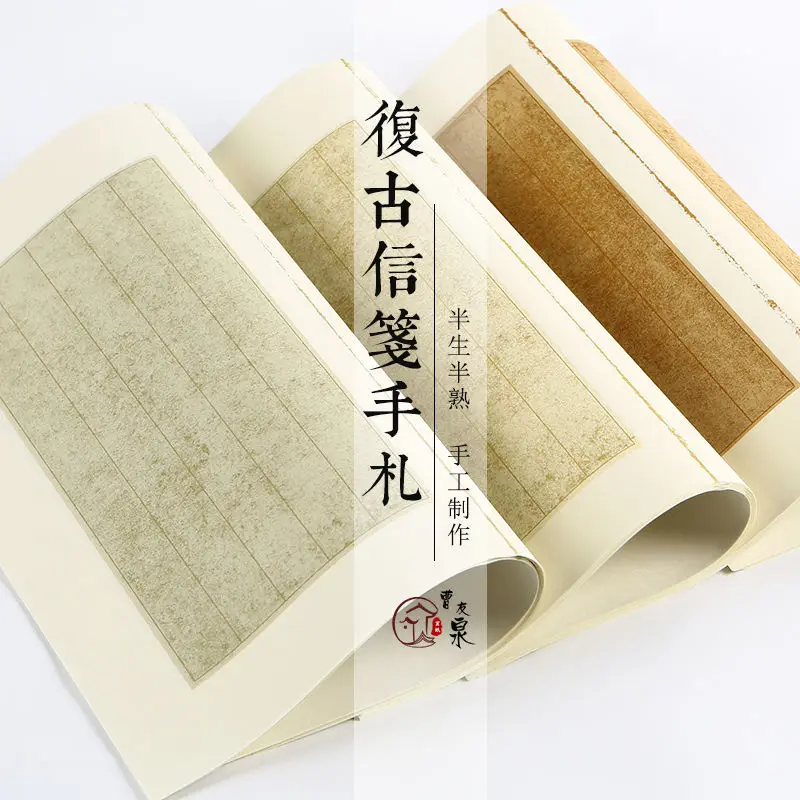 復古信箋手札
半生半熟 手工制作
曹友泉
宣紙